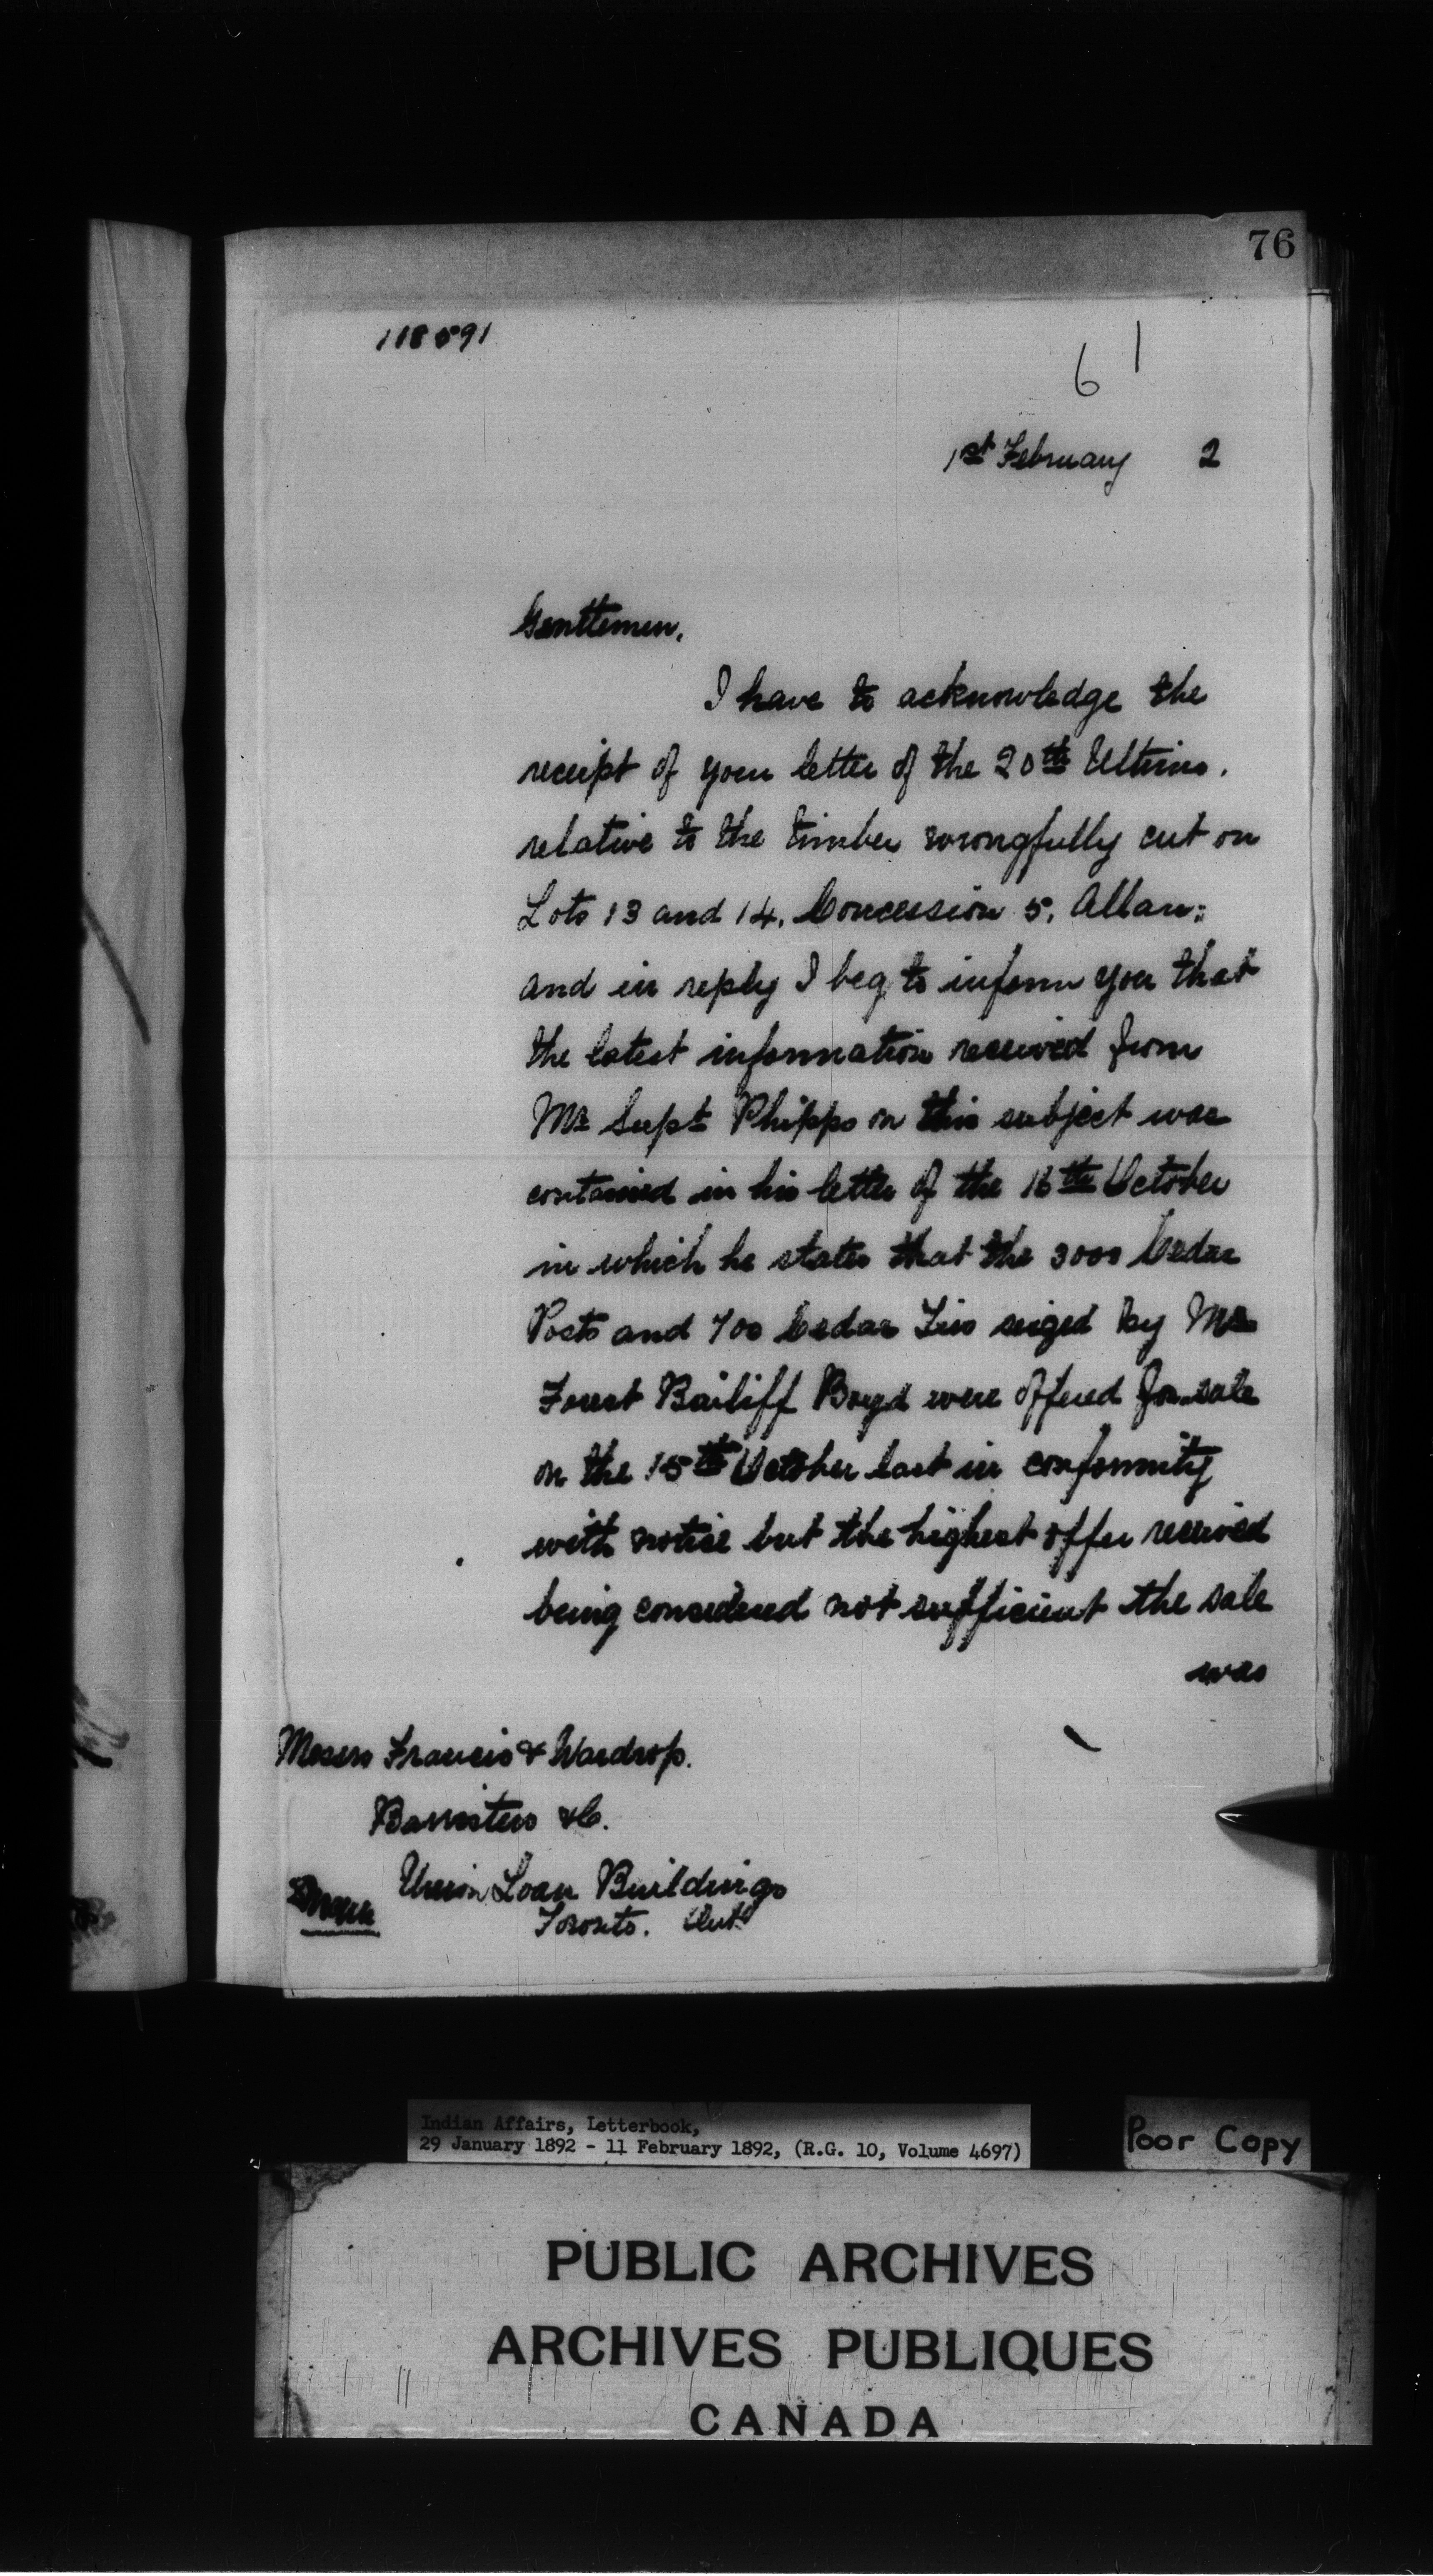 76
118591
6 1
1st February 2
Gentlemen,
I have to acknowledge the
receipt of your letter of the 20th Ultimo.
relative to the timber wrongfully cut on
Lots 13 and 14. Concession 5, Allan:
and in reply I beg to inform you that
the latest information received from
Mr Supt Phipps on this subject was
contained in his letter of the 16th October
in which he states that the 3000 Cedar
Posts and 700 Cedar Ties seized by Mr
Forest Bailiff Boyd were offered for sale
on the 15th October last in conformity
with notice but the highest offer received
being considered not sufficient the sale
was
Messrs Francis & Wardrop.
Barristers &c.
Union Loan Buildings
Toronto. Ont
Indian Affairs, Letterbook,
29 January 1892 - 11 February 1892, (R.G. 10, Volume 4697)
Poor Copy
PUBLIC ARCHIVES
ARCHIVES PUBLIQUES
CANADA